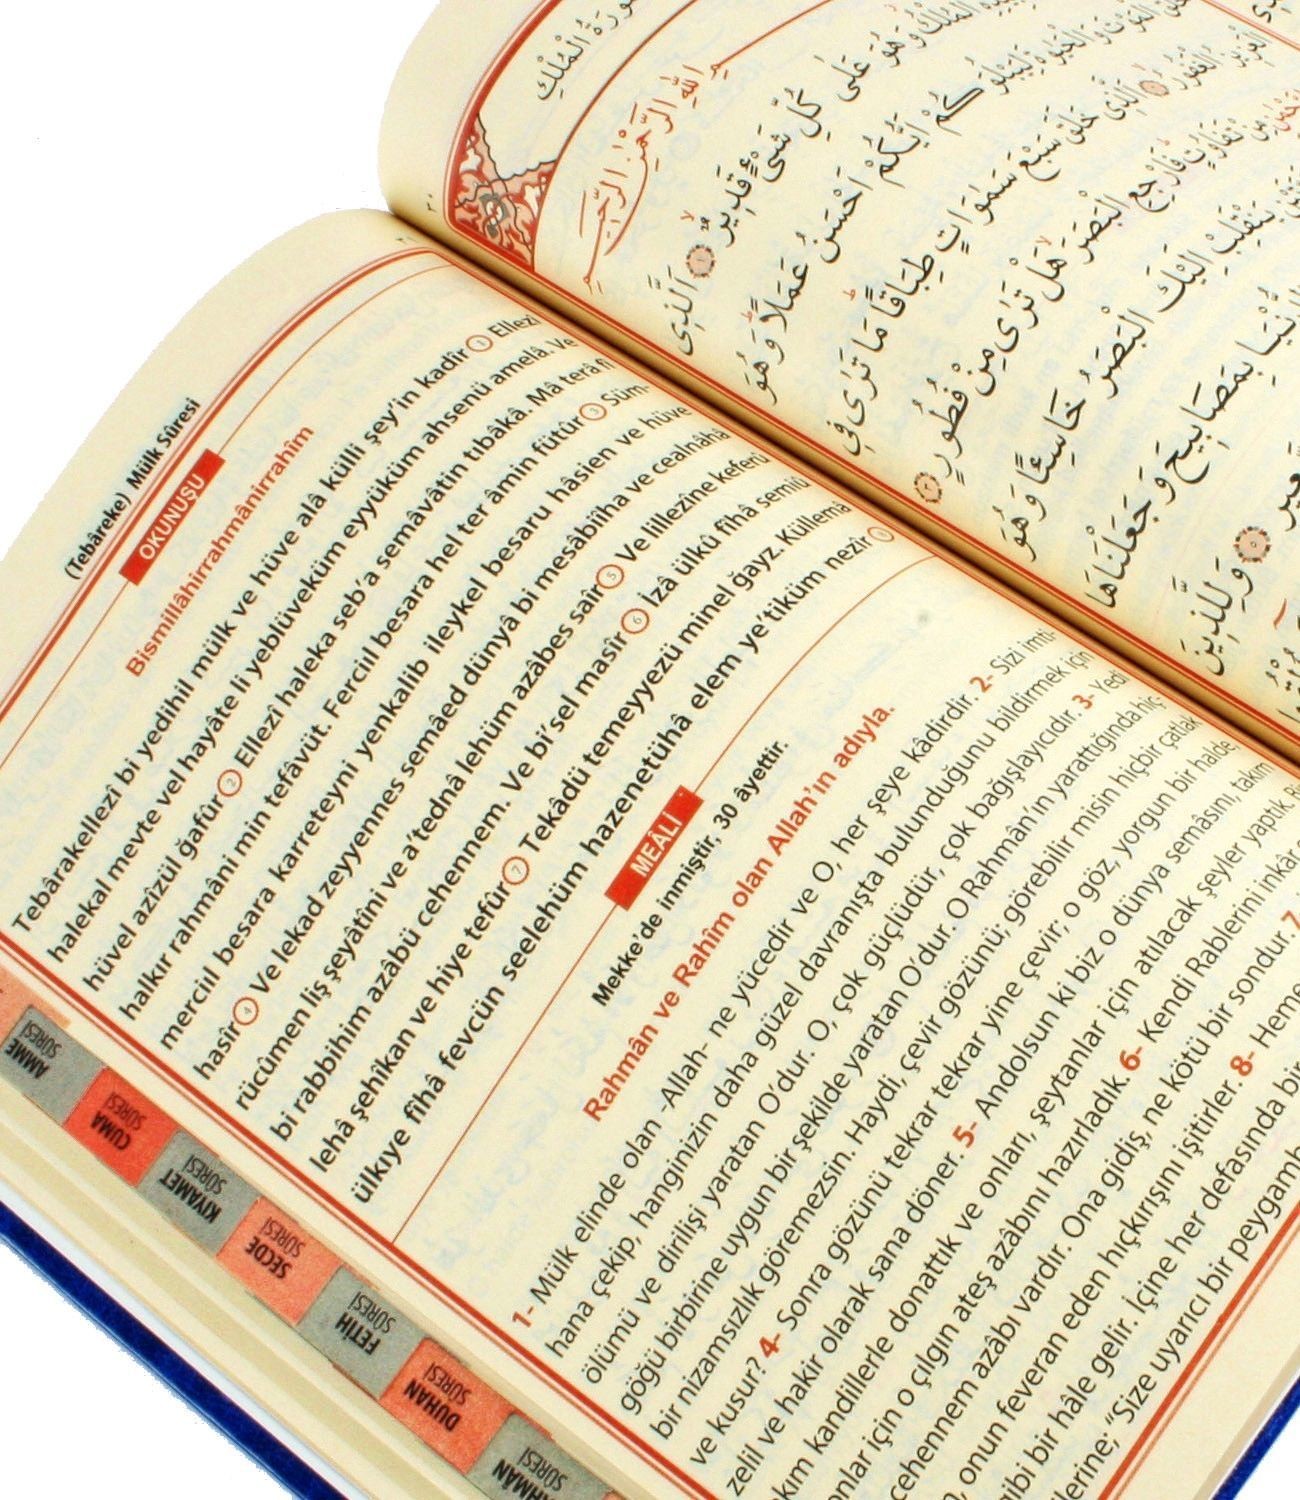 (Tebâreke) Mülk Sûresi
OKUNUŞU
Bismillâhirrahmânirrahîm
Tebârakellezî bi yedihil mülk ve hüve alâ külli şey'in kadîr 1 Ellezî
halekal mevte vel hayâte li yeblüveküm eyyüküm ahsenü amelâ. Ve
hüvel azîzül ğafûr 2 Ellezî haleka seb'a semâvâtin tıbâkâ. Mâ terâ fî
halkır rahmâni min tefâvüt. Ferciıl besara hel ter âmin fütûr 3 Süm-
merciıl besara karreteyni yenkalib ileykel besaru hâsien ve hüve
hasîr 4 Ve lekad zeyyennes semâed dünyâ bi mesâbîiha ve cealnâhâ
rücûmen liş şeyâtîni ve a'tednâ lehüm azâbes saîr 5 Ve lillezîne keferû
bi rabbihim azâbü cehennem. Ve bi'sel masîr 6 İzâ ülkû fîhâ semiû
lehâ şehîkan ve hiye tefûr 7 Tekâdü temeyyezü minel ğayz. Küllemâ
ülkıye fîhâ fevcün seelehüm hazenetühâ elem ye'tiküm nezîr 8
MEÂLİ
Mekke'de inmiştir, 30 âyettir.
Rahmân ve Rahîm olan Allah'ın adıyla.
1- Mülk elinde olan -Allah- ne yücedir ve O, her şeye kâdirdir. 2- Sizi imti-
hana çekip, hanginizin daha güzel davranışta bulunduğunu bildirmek için
ölümü ve dirilişi yaratan O'dur. O, çok güçlüdür, çok bağışlayıcıdır. 3- Yedi
göğü birbirine uygun bir şekilde yaratan O'dur. O Rahmân'ın yarattığında hiç-
bir nizamsızlık göremezsin. Haydi, çevir gözünü; görebilir misin hiçbir çatlak
ve kusur? 4- Sonra gözünü tekrar tekrar yine çevir; o göz, yorgun bir halde,
zelil ve hakir olarak sana döner. 5- Andolsun ki biz o dünya semâsını, takım
kım kandillerle donattık ve onları, şeytanlar için atılacak şeyler yaptık.
onlar için o çılgın ateş azabını hazırladık. 6- Kendi Rablerini inkâr
cehennem azâbı vardır. Ona gidiş, ne kötü bir sondur. 7
onun feveran eden hıçkırışını işitirler. 8- Heme
gibi bir hâle gelir. İçine her defasında bir
lerine; "Size uyarıcı bir peygamb
AMME SÛRESİ
CUMA SÛRESİ
KIYAMET SÛRESİ
SECDE SÛRESİ
FETİH SÛRESİ
DUHAN SÛRESİ
RAHMAN SÛRESİ
سُورَةُ الْمُلْكِ
اللهِ الرَّحْمٰنِ الرَّحِيمِ
الْمُلْكُ وَهُوَ عَلٰى كُلِّ شَيْءٍ قَدِيرٌ ١ اَلَّذِى
الْمَوْتَ وَالْحَيٰوةَ لِيَبْلُوَكُمْ اَيُّكُمْ اَحْسَنُ عَمَلًا وَهُوَ
الْعَزِيزُ الْغَفُورُ ٢ اَلَّذِى خَلَقَ سَبْعَ سَمٰوَاتٍ طِبَاقًا مَا تَرٰى فِى
مِنْ تَفَاوُتٍ فَارْجِعِ الْبَصَرَ هَلْ تَرٰى مِنْ فُطُورٍ ٣
يَنْقَلِبْ اِلَيْكَ الْبَصَرُ خَاسِئًا وَهُوَ
الدُّنْيَا بِمَصَابِيحَ وَجَعَلْنَاهَا
السَّعِيرِ ٥ وَلِلَّذِينَ